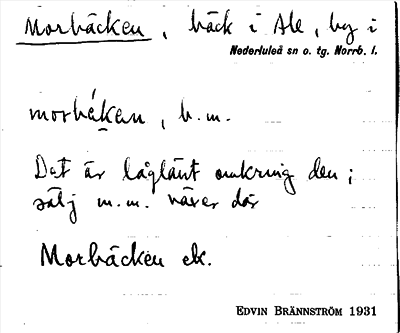 Morbäcken, bäck i Ale, by i
Nederluleå sn o. tg. Norrb. l.
morbékan, b. m.
Det är låglänt omkring den;
sälj m.m. växer där
Morbäcken ek.
EDVIN BRÄNNSTRÖM 1931